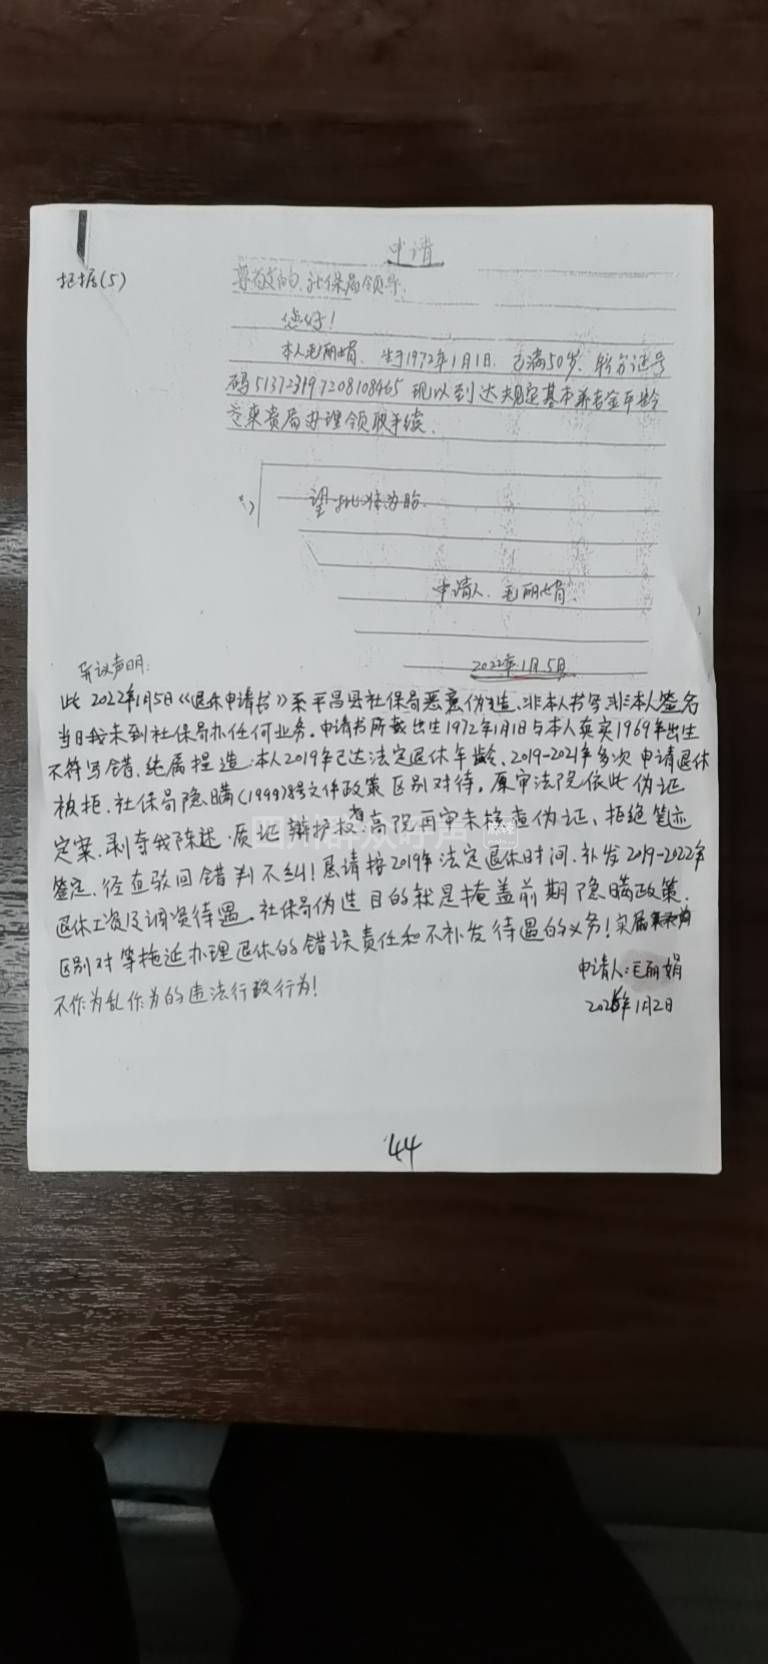 申请
拒据(5)
尊敬的社保局领导.
您好!
本人毛丽娟、生于1972年1月1日、已满50岁、身分证号
码513723197208108465 现以到达规定基本养老金年龄
专来贵局办理领取手续.
望批准为盼
申请人.毛丽娟.
2022年1月5日
异议声明:
此2022年1月5日《退休申请书》系平昌县社保局恶意伪造、非本人书写非本人签名
当日我未到社保局办任何业务。申请书所载出生1972年1月1日与本人真实1969年出生
不符写错、纯属捏造.本人2019年已达法定退休年龄、2019-2021年多次申请退休
被拒.社保局隐瞒(1999)8号文件政策区别对待。原审法院依此伪证
定案、剥夺我陈述.质证辩护权.高院再审未核查伪证、拒绝笔迹
鉴定、径直驳回错判不纠!恳请按2019年法定退休时间、补发2019-2022年
退休工资及调资待遇。社保局伪造目的就是掩盖前期隐瞒政策.
区别对等拖延办理退休的错误责任和不补发待遇的义务!实属
不作为乱作为的违法行政行为!
申请人:毛丽娟
年1月2日
44
四川群众呼声